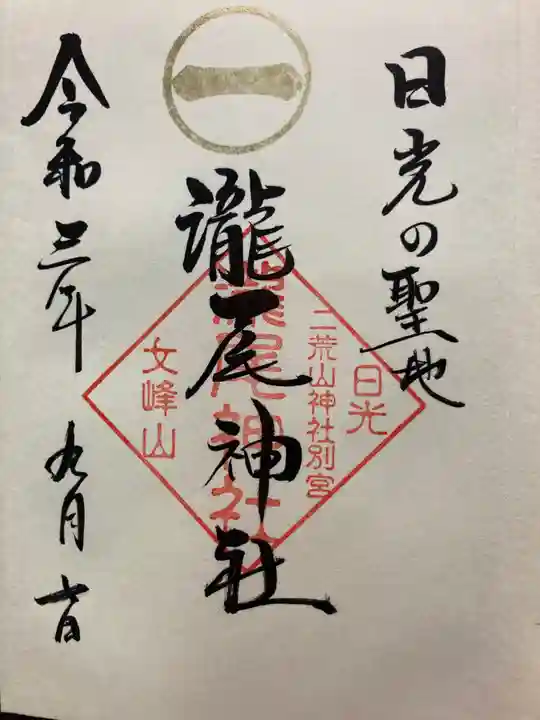 日光の聖地
瀧尾神社
令和三年 九月
日光
二荒山神社別宮
瀧尾神社
女峰山